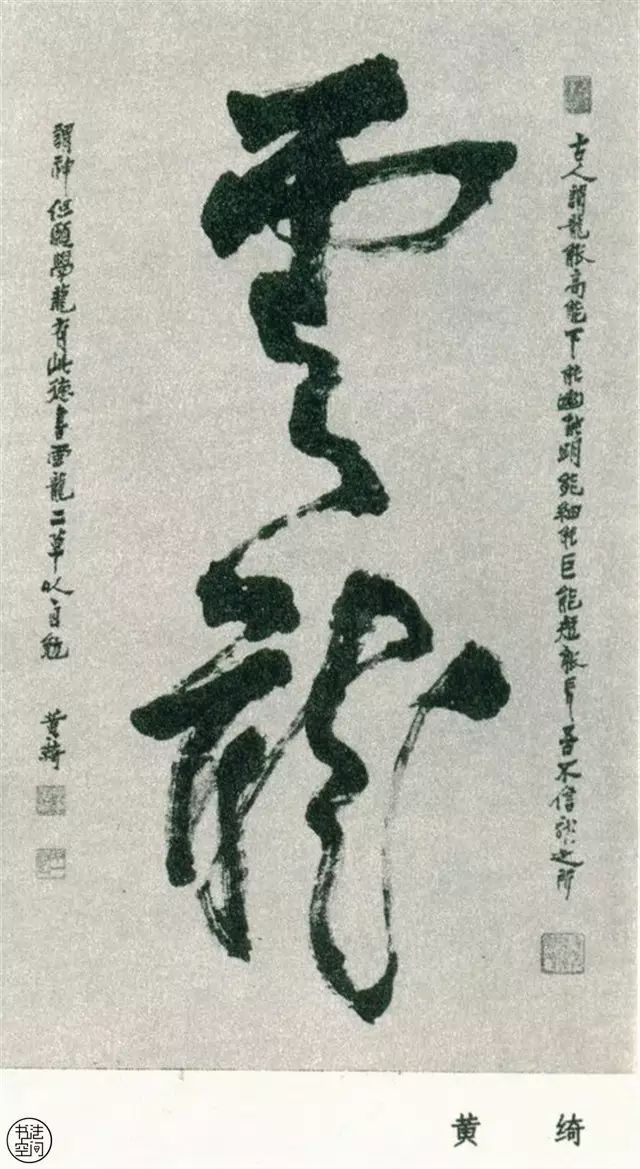 雲龍
古人謂龍能高能下能幽能明能細能巨能短能長吾不信龍之所
謂神但願學龍有此德書雲龍二草以自勉
黄綺
黄绮
书法空间